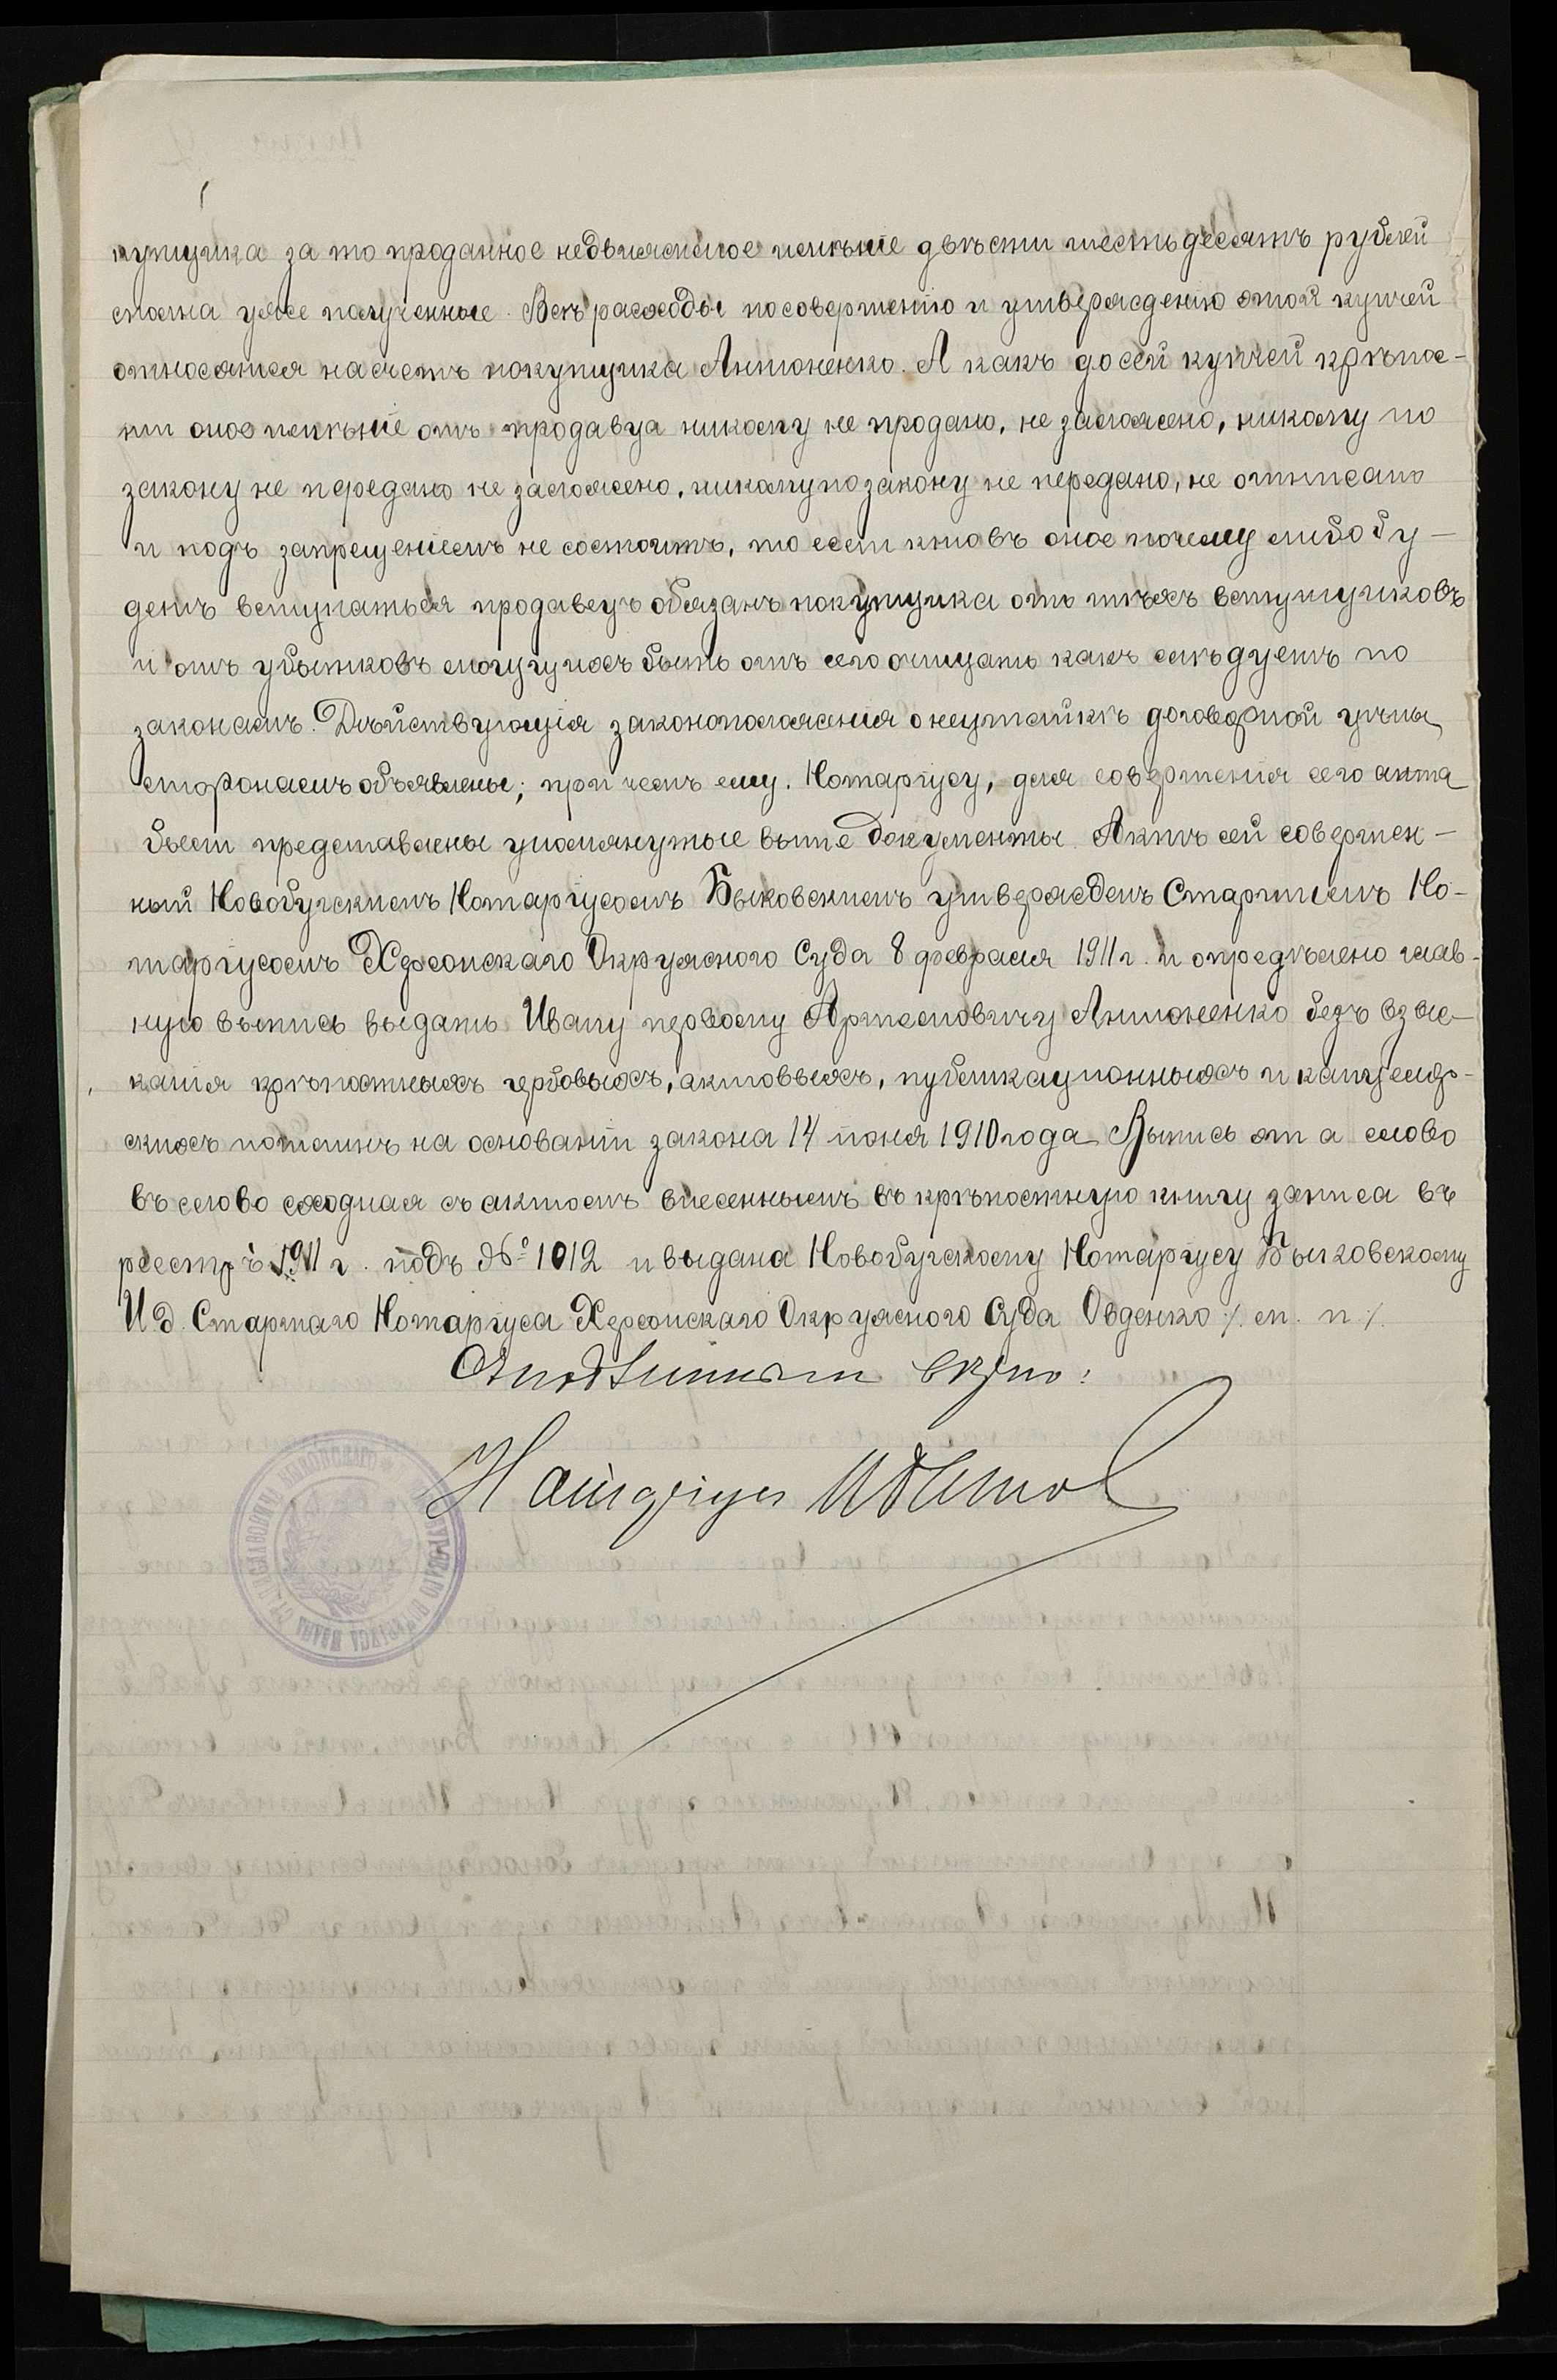 купщика за то проданное недвижимое имѣніе двѣсти шестьдесятъ рублей
сполна уже полученные. Всѣ расходы по совершенію и утвержденію этой купчей
относятся на счетъ покупщика Антоненко. А какъ до сей купчей крѣпос-
ти оное имѣніе отъ продавца никому не продано, не заложено, никому по
закону не передано не заложено, никому по закону не передано, не отписано
и подъ запрещеніемъ не состоитъ, то если кто въ оное почему либо бу-
детъ вступаться продавецъ обязанъ покупщика отъ тѣхъ вступщиковъ
и отъ убытковъ могущихъ быть отъ сего очищать какъ слѣдуетъ по
законамъ. Дѣйствующія законоположенія о неустойкѣ договорной
сторонамъ объявлены; при чемъ ему, Нотаріусу, для совершенія сего акта
были представлены упомянутые выше документы. Актъ сей совершен-
ный Новобугскимъ Нотаріусомъ Быковскимъ утвержденъ Старшимъ Но-
таріусомъ Херсонскаго Окружного Суда 8 февраля 1911 г. и опредѣлено глав-
ную выпись выдать Ивану первому Артемовичу Антоненко безъ взыс-
канія крѣпостныхъ гербовыхъ, актовыхъ, публикаціонныхъ и канцеляр-
скихъ пошлинъ на основаніи закона 14 іюня 1910 года Выпись эта слово
въ слово сходная съ актомъ внесеннымъ въ крѣпостную книгу записа въ
реестрѣ 1911 г. подъ № 1012 и выдана Новобугскому Нотаріусу Быковскому
И д. Старшаго Нотаріуса Херсонскаго Окружного Суда Овденко /. м. п. /.
Съ подлиннымъ вѣрно:
Нотаріусъ